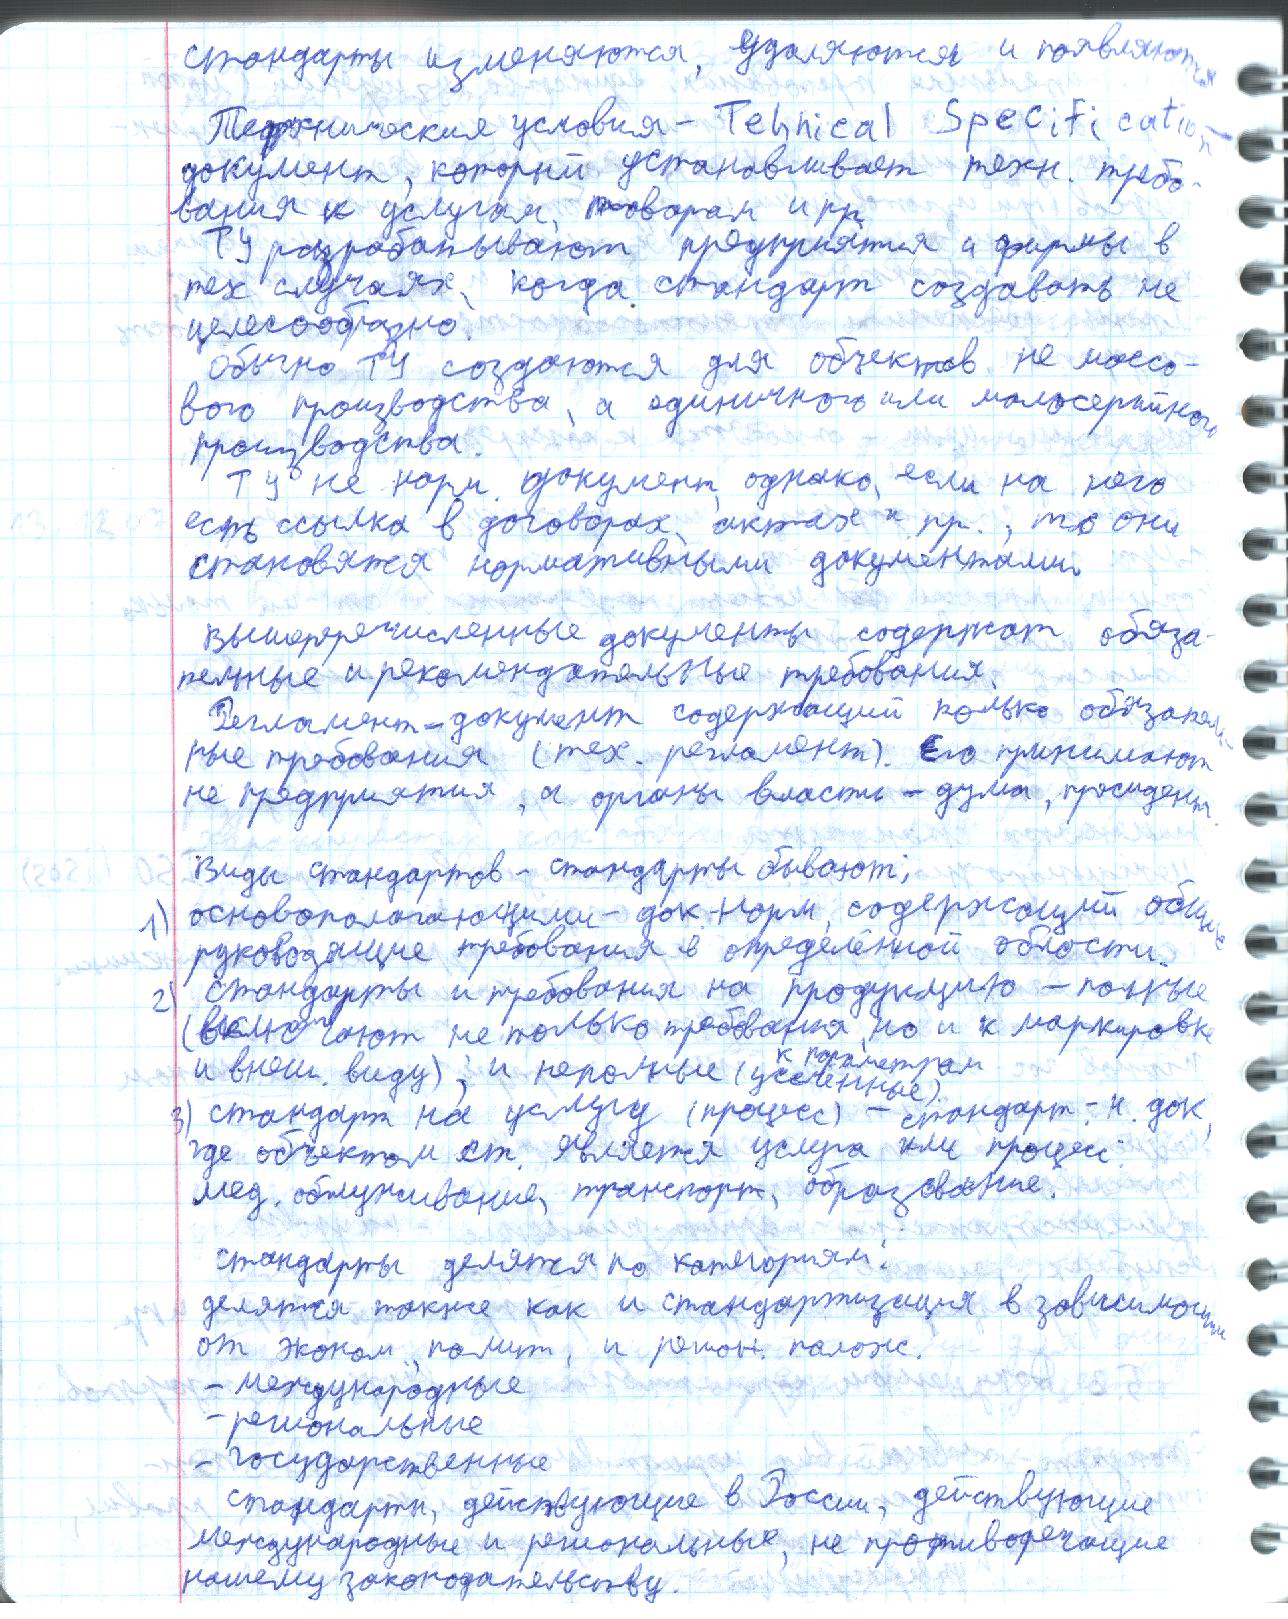 стандарты изменяются, удаляются и появляются
Технические условия – Tehnical Specification
документ, который устанавливает техн. требо-
вания к услугам, товарам и пр.
ТУ разрабатывают предприятия и фирмы в
тех случаях, когда стандарт создавать не
целесообразно.
Обычно ТУ создаются для объектов не массо-
вого производства, а единичного или малосерийного
производства.
ТУ не норм. документ, однако, если на него
есть ссылка в договорах, актах и пр., то они
становятся нормативными документами.
Вышеперечисленные документы содержат обяза-
тельные и рекомендательные требования.
Регламент – документ содержащий только обязатель-
ные требования (тех. регламент). Его принимают
не предприятия, а органы власти – дума, президент.
Виды стандартов – стандарты бывают:
1) основополагающими – док-норм, содержащий общие
руководящие требования в определённой области.
2) стандарты и требования на продукцию – полные
(включают не только требования, но и к маркировке
к параметрам
и внеш. виду), и неполные (усеченные).
3) стандарт на услугу (процесс) – стандарт – н. док,
где объектом ст. является услуга или процесс:
мед. обслуживание, транспорт, образование.
стандарты делятся по категориям:
делятся также как и стандартизация в зависимости
от эконом., полит, и регион. полож.
– международные
– региональные
– государственные
стандарты, действующие в России, действующие
международные и региональные, не противоречащие
нашему законодательству.